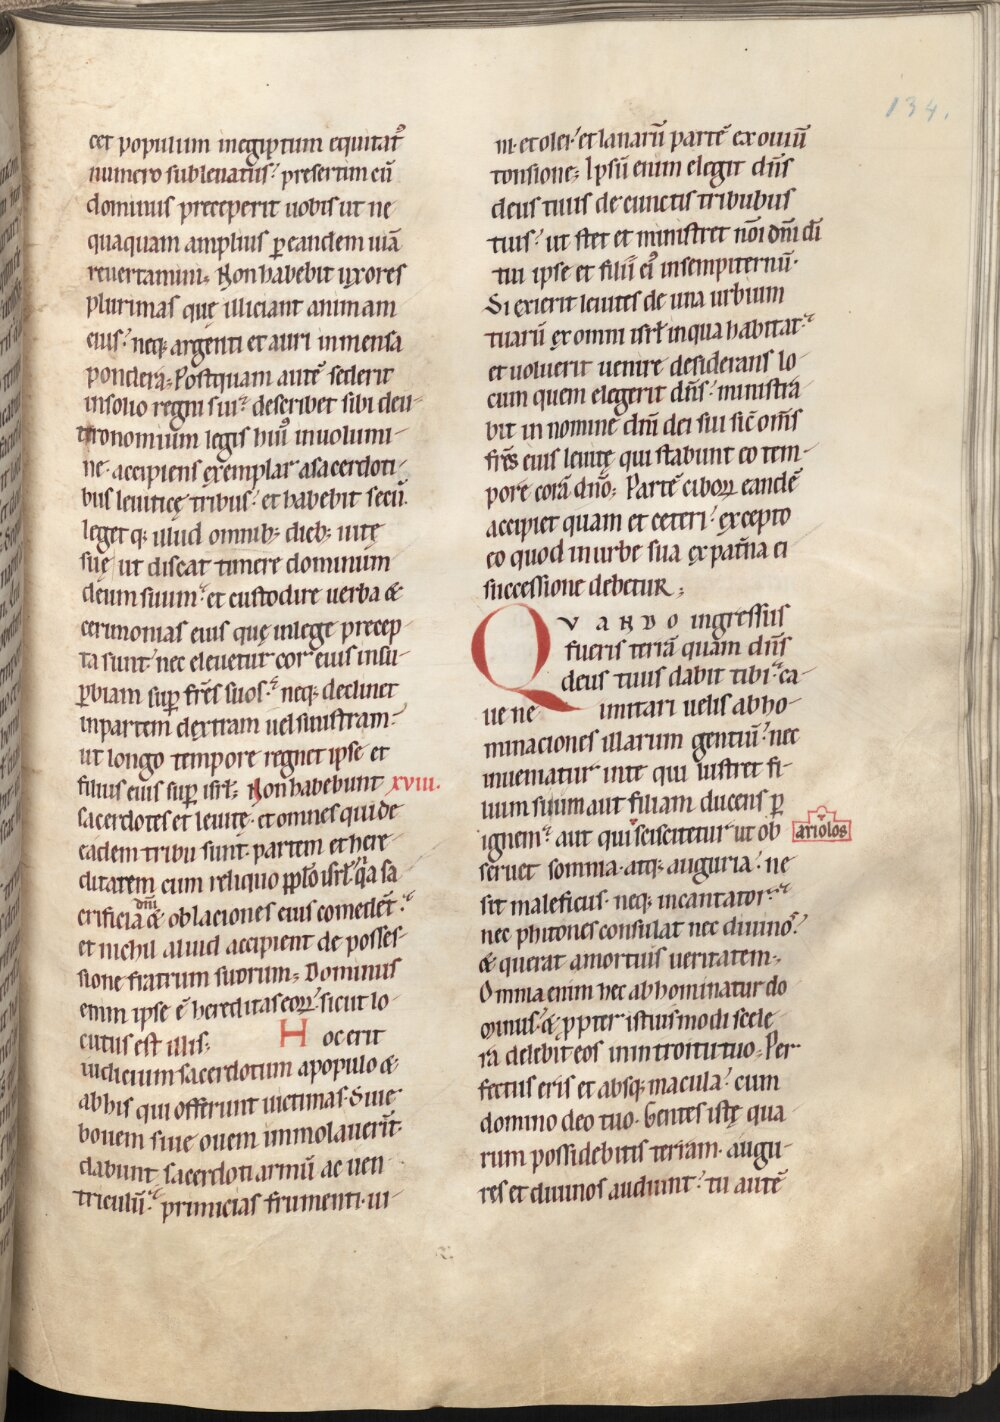 134.
cet populum inegiptum equitatꝰ
numero subleuatus? presertim cū
dominus preceperit uobis ut ne
quaquam amplius ꝑ eandem uiā
reuertamini; Non habebit uxores
plurimas quę illiciant animam
eius? neq; argenti et auri inmensa
pondera; Postquam autē sederit
insolio regni sui? describet sibi deu-
teronomium legis huiꝰ inuolumi-
ne· accipiens exemplar asacerdoti-
bus leuiticę tribus? et habebit secū·
leget q; illud omnib; dieb; uitę
suę ut discat timere dominum
deum suum? et custodire uerba &
cerimonias eius quę inlege precep-
ta sunt· nec eleuetur cor eius insu-
ꝑbiam suꝑ frēs suos? neq; declinet
inpartem dextram uel sinistram?
ut longo tempore regnet ipse et
filius eius suꝑ isrł; Non habebunt xviii.
sacerdotes et leuitę· et omnes qui de
eadem tribu sunt· partem et here-
ditatem cum reliquo pplo isrł· qa sa
crificia dñi & oblaciones eius comedēt?
et nichil aliud accipient de posses-
sione fratrum suorum; Dominus
enim ipse ē hereditas eoꝝ? sicut lo-
cutus est illis; Hoc erit
iudicium sacerdotum apopulo &
ab his qui offerunt uictimas· Siue
bouem siue ouem immolauerīt·
dabunt sacerdoti armū ac uen-
triculū? primicias frumenti· ui-
ni· et olei· et lanarū partē ex ouiū
tonsione; Ipsū enim elegit dn̄s
deus tuus de cunctis tribubus
tuis? ut stet et ministret nōi dn̄i dī
tui ipse et filii eiꝰ insempiternū·
Si exierit leuites de una urbium
tuarū ex omni isrł inqua habitat?
et uoluerit uenire desiderans lo-
cum quem elegerit dn̄s· ministra-
bit in nomine dn̄i dei sui sic̄ om̄s
frēs eius leuitę qui stabunt eo tem-
pore corā dn̄o; Partē ciboꝝ eandē
accipiet quam et ceteri? excepto
eo quod inurbe sua ex pat̄na ei
successione debetur;
QVANDO ingressus
fueris terrā quam dn̄s
deus tuus dabit tibi? ca-
ue ne imitari uelis abho-
minaciones illarum gentiū? nec
inueniatur inte qui lustret fi-
lium suum aut filiam ducens ꝑ
ignem? aut qui sciscitetur ut ob ariolos
seruet somnia· atq; auguria? ne
sit maleficus· neq; incantator?
nec phitones consulat nec diuinos?
& querat amortuis ueritatem;
Omnia enim hec abhominatur do-
minus? & ꝓpter istiusmodi scele-
ra delebit eos inintroitu tuo; Per
fectus eris et absq; macula? cum
domino deo tuo· Gentes istę qua-
rum possidebitis terram· augu-
res et diuinos audiunt? tu autē